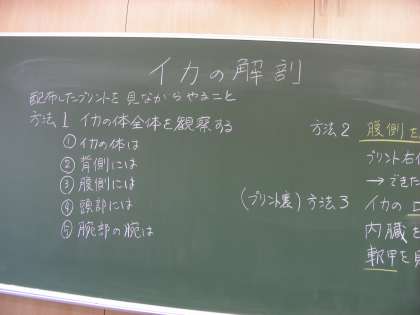 イカの解剖
配布したプリントを見ながらやること
方法1 イカの体全体を観察する
①イカの体は
②背側には
③腹側には
④頭部には
⑤腕部の腕は
方法2 腹側を
プリント右
→できた
(プリント裏) 方法3
イカの口
内臓を
軟甲を見